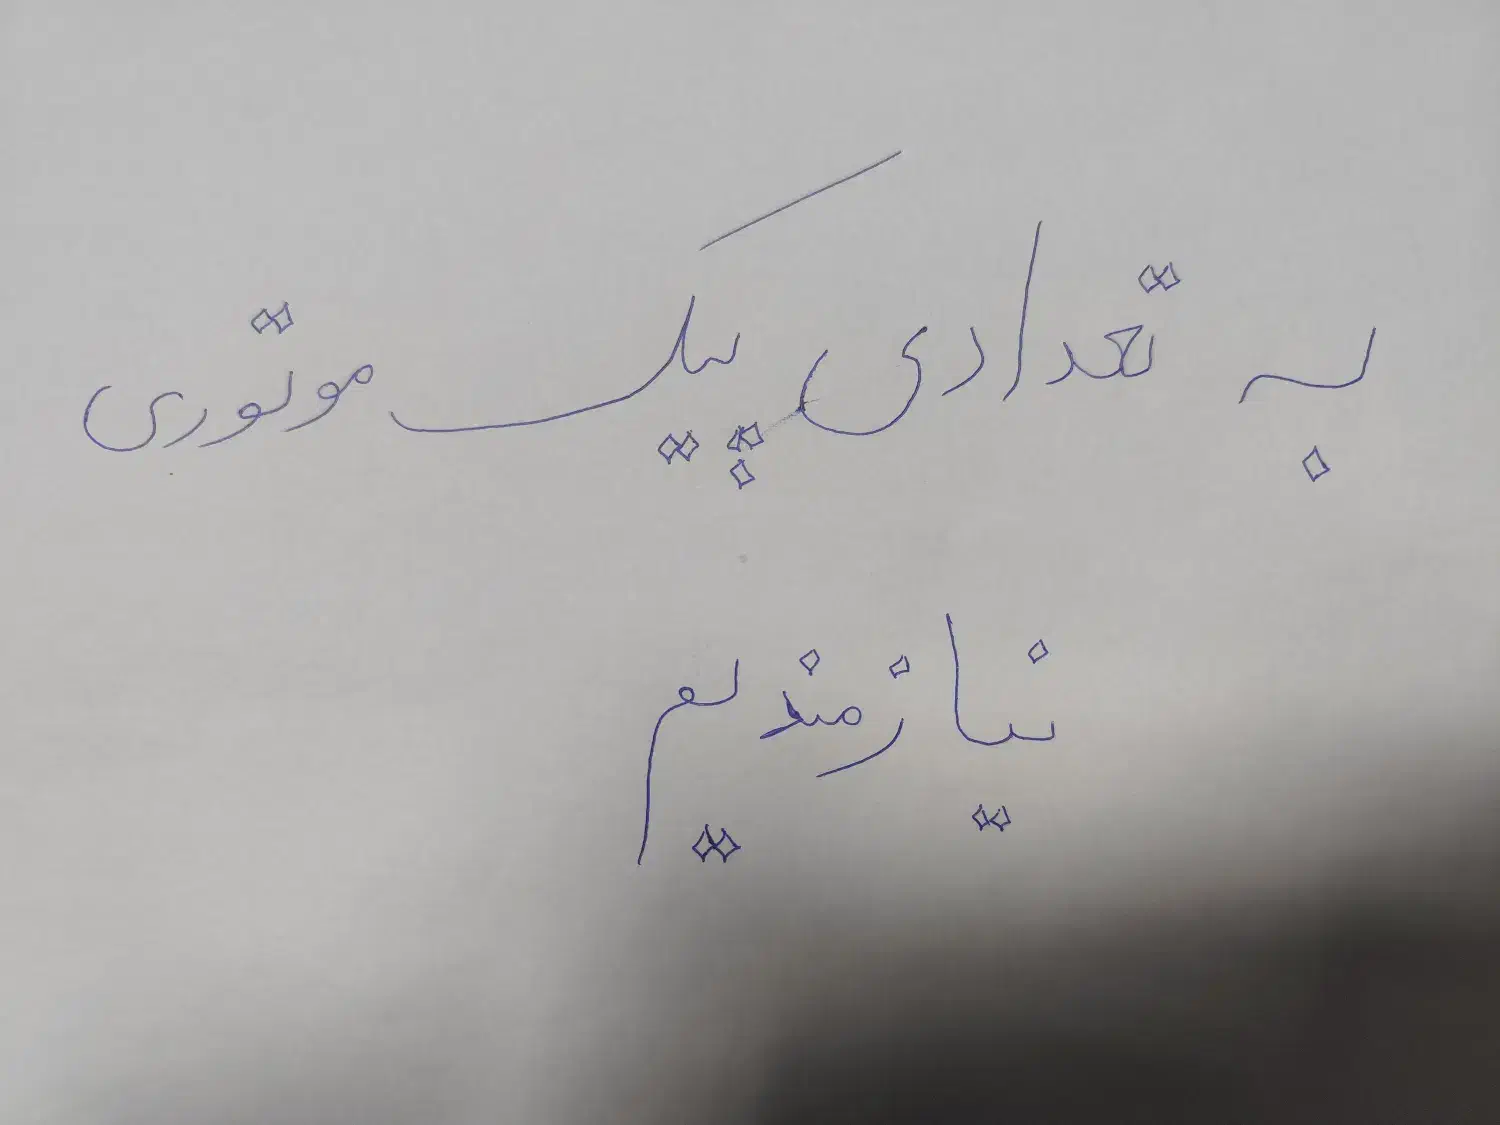 به تعدادی پیک موتوری
نیازمندیم